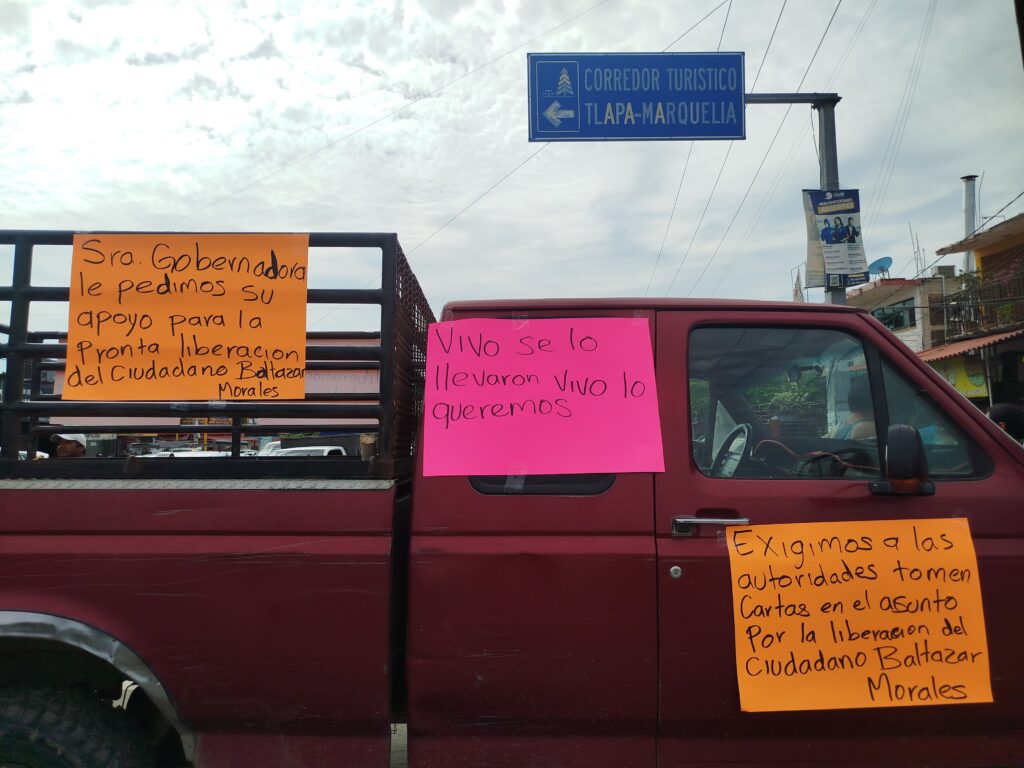 CORREDOR TURISTICO
TLAPA-MARQUELIA
UAM
INSCRIPCIONES
ABIERTAS
Sra. Gobernadora
le pedimos su
apoyo para la
Pronta liberacion
del Ciudadano Baltazar
Morales
Vivo se lo
llevaron vivo lo
queremos
Exigimos a las
autoridades tomen
Cartas en el asunto
Por la liberacion del
Ciudadano Baltazar
Morales